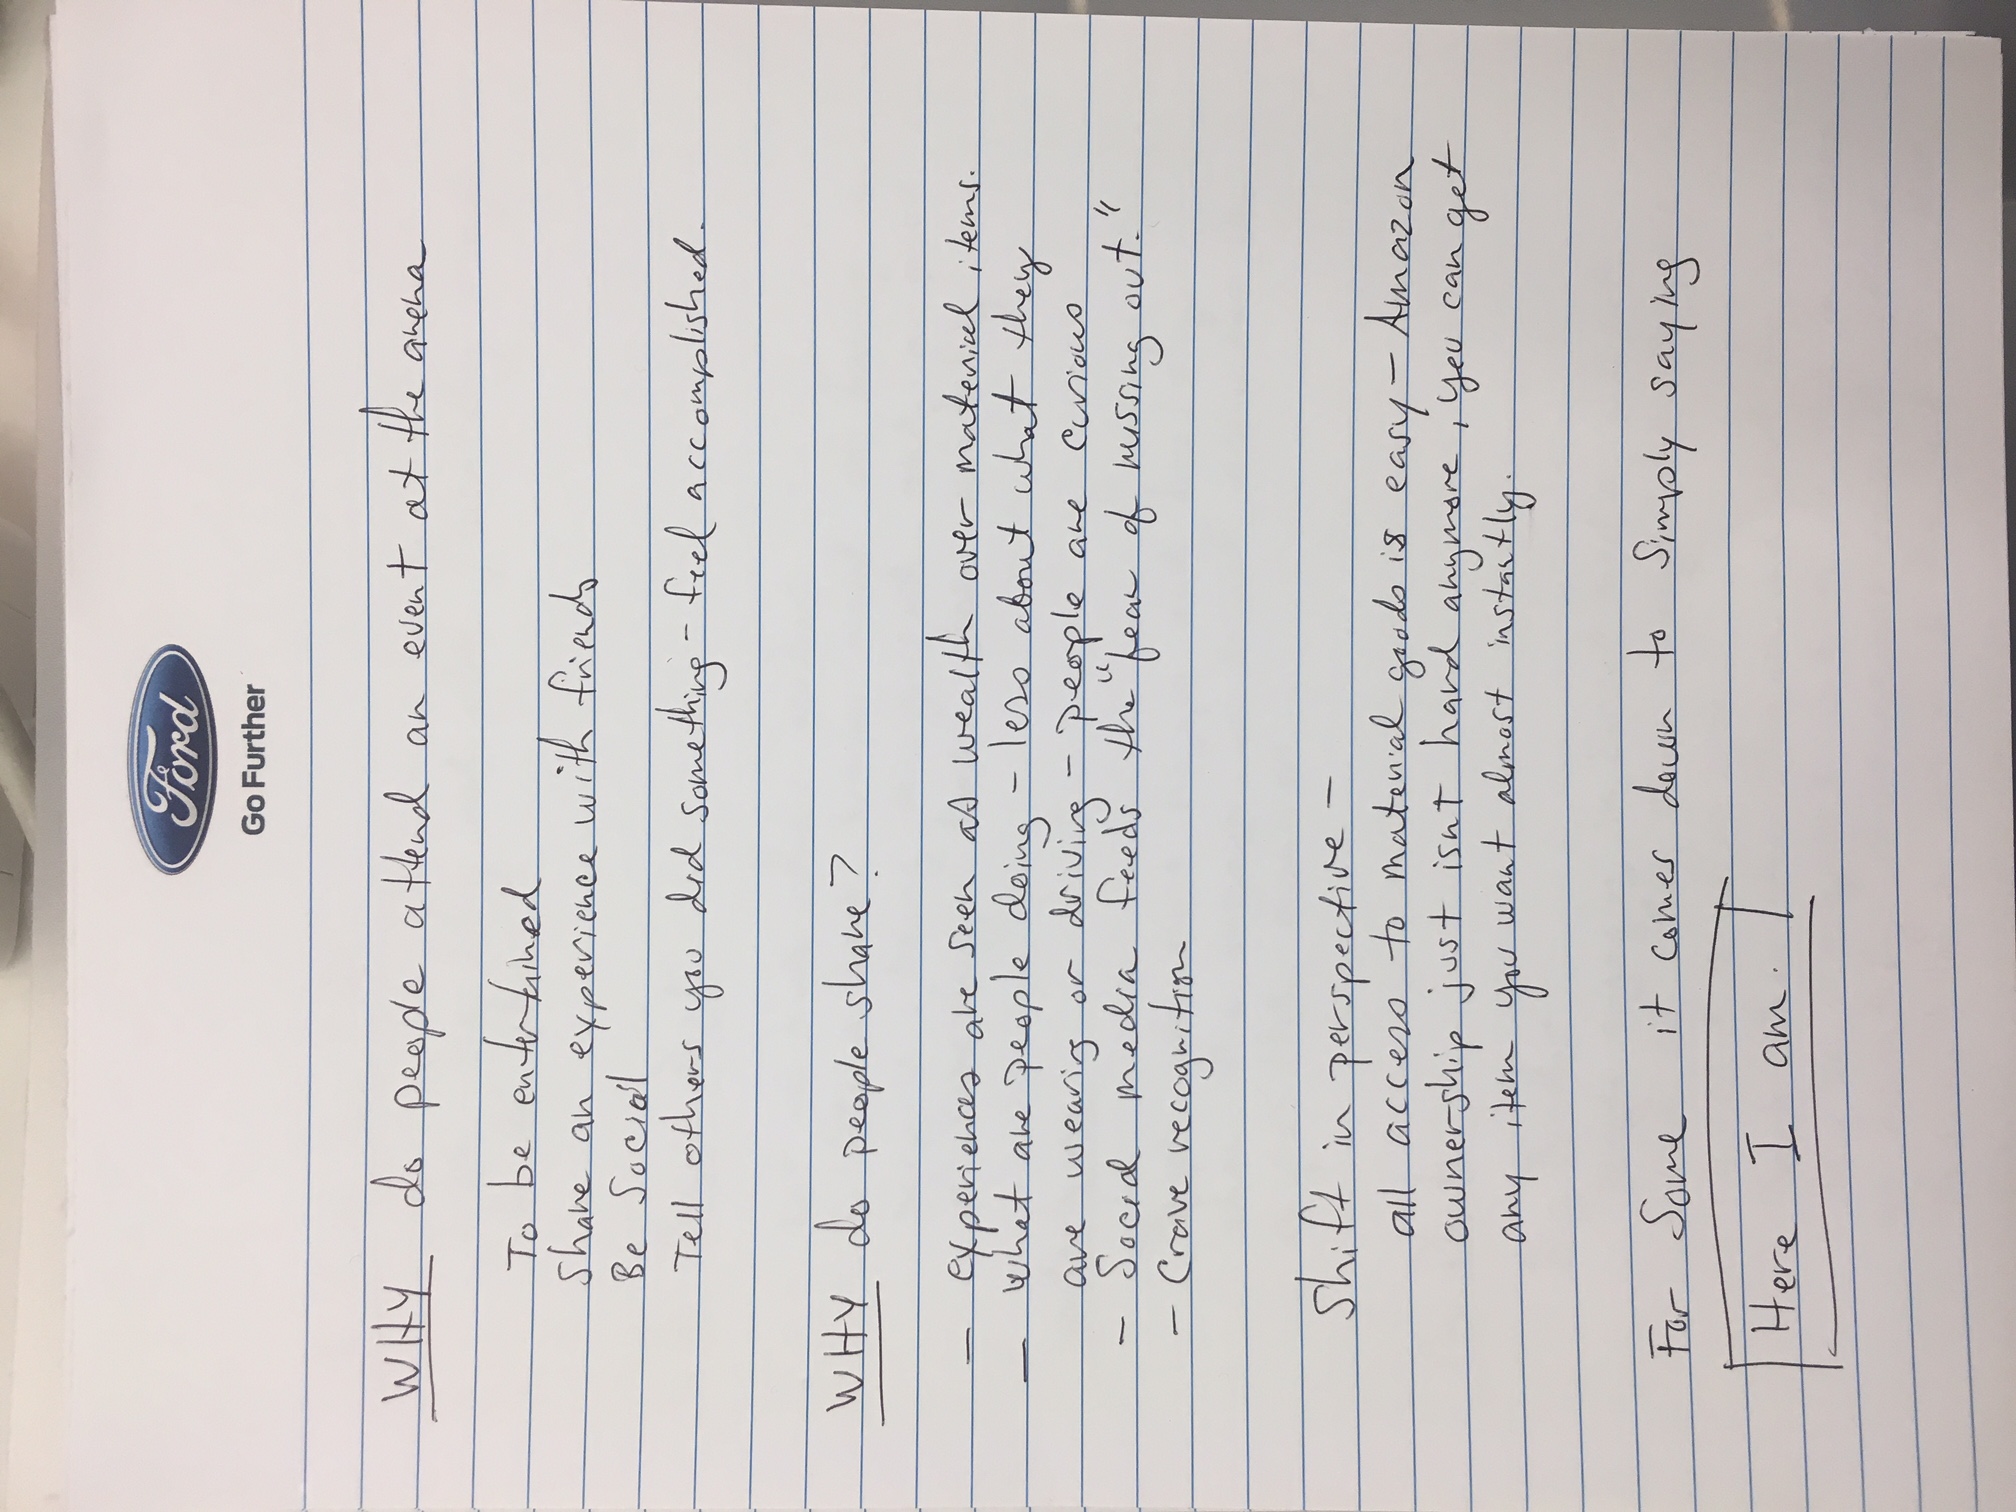 Ford
Go Further
WHY do people attend an event at the arena
To be entertained
Share an experience with friends
Be Social
Tell others you did something - feel accomplished.
WHY do people share?
- experiences are seen as wealth over material items.
- What are people doing - less about what they
are wearing or driving - people are curious
- Social media feeds the "fear of missing out."
- Crave recognition
Shift in perspective -
all access to material goods is easy - Amazon
ownership just isnt hard anymore, you can get
any item you want almost instantly.
For Some it comes down to Simply saying
Here I am.